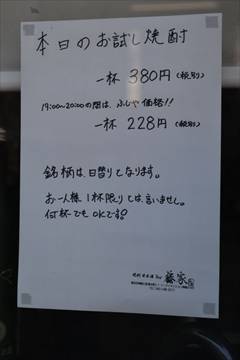 本日のお試し焼酎
一杯 380円(税別)
19:00~20:00の間は、ふじや価格!!
一杯 228円(税別)
銘柄は、日替りとなります。
お一人様、1杯限りとは、言いません。
何杯でもOKです!
藤家